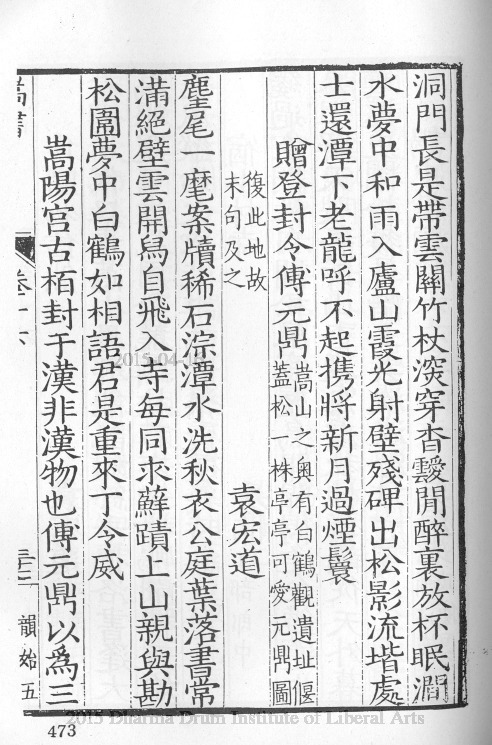 洞門長是帶雲關竹杖㴱穿杳靉閒醉裏放杯眠澗
水夢中和雨入廬山霞光射壁殘碑出松影流堦處
士還潭下老龍呼不起携將新月過煙鬟
贈登封令傅元鼎
嵩山之奥有白鶴觀遺址偃
蓋松一株亭亭可愛元鼎圖
復此地故
末句及之
袁宏道
麈尾一麾案牘稀石淙潭水洗秋衣公庭葉落書常
滿絕壁雲開舄自飛入寺每同求蘚蹟上山親與勘
松圍夢中白鶴如相語君是重來丁令威
嵩陽宫古栢封于漢非漢物也傅元鼎以爲三
嵩書
韻始五
473
2015-04-
2015 Dharma Drum Institute of Liberal Arts